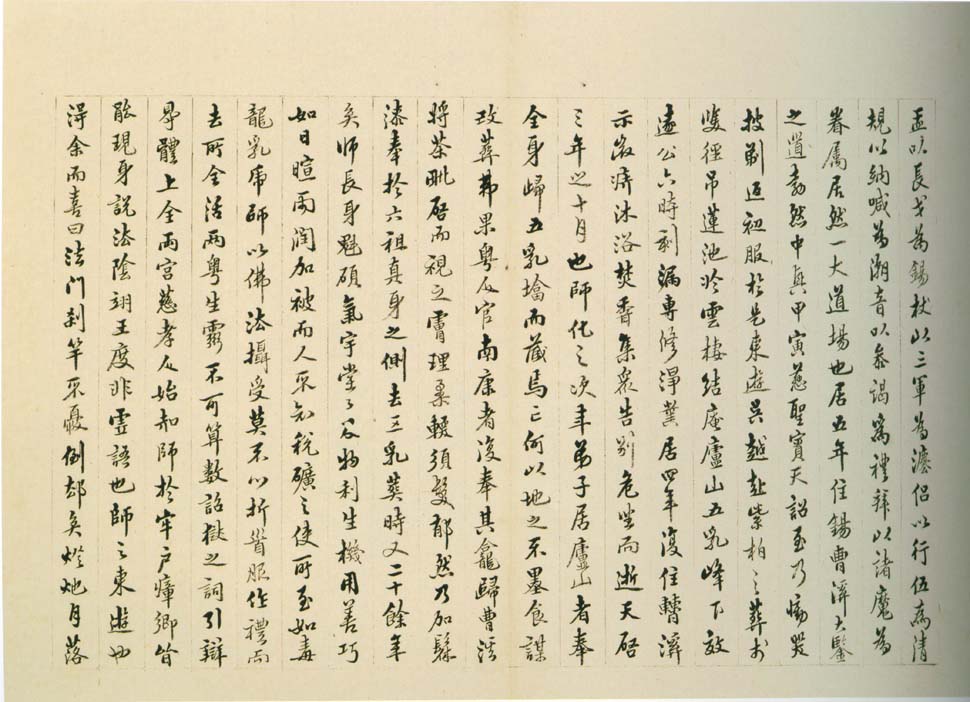 盂以長戈為錫杖以三軍為瀍侣以行伍為清
規以納喊為潮音以叅謁為禮拜以諸魔為
眷属居然一大道場也居五年住錫曹溪大鑒
之道勃然中興甲寅慈聖賓天詔至乃慟哭
披剃返初服於是東遊吳越赴紫栢之葬於
雙徑吊蓮池於雲棲結庵廬山五乳峰下效
遠公六時刻漏専修淨業居四年復住曹溪
示㣲疾沐浴焚香集衆告别危坐而逝天啓
三年之十月也師化之次年弟子居廬山者奉
全身歸五乳墖而藏焉亡何以地之不墨食謀
改葬弗果粤人官南康者復奉其龕歸曹溪
將茶毗啓而視之膚理柔輭須髮郁然乃加髹
漆奉於六祖真身之側去五乳葵時又二十餘年
矣師長身魁碩氣宇堂々及物利生機用善巧
如日暄雨潤加被而人不知税礦之使所至如毒
龍乳虎師以佛法攝受莫不心折首服作禮而
去所全活兩粤生靈不可算數詔獄之詞引辯
爭體上全兩宫慈孝人始知師於牢户瘴鄉皆
能現身説法陰翊王度非虚語也師之東遊也
得余而喜曰法門刹竿不憂倒却矣燈灺月落